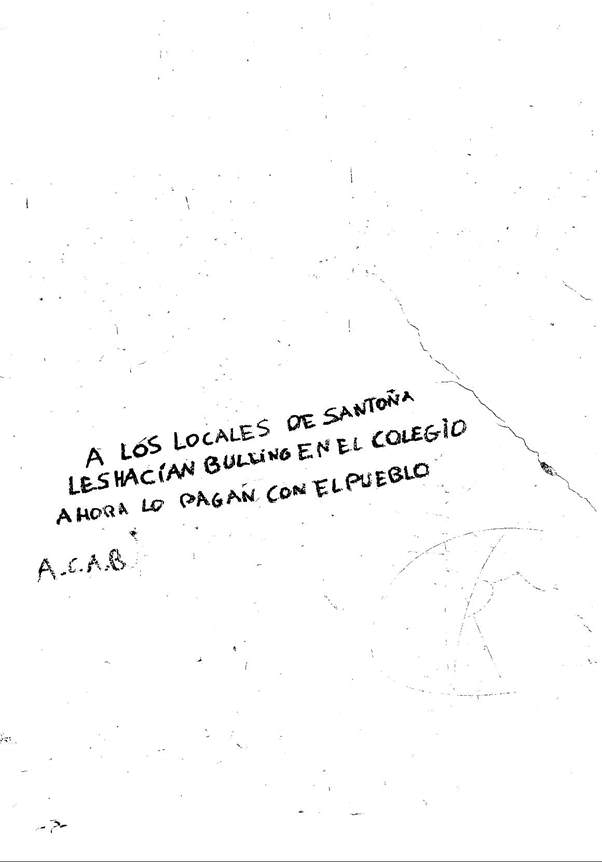 A LOS LOCALES DE SANTOÑA
LES HACÍAN BULLING EN EL COLEGIO
AHORA LO PAGAN CON EL PUEBLO
A.C.A.B